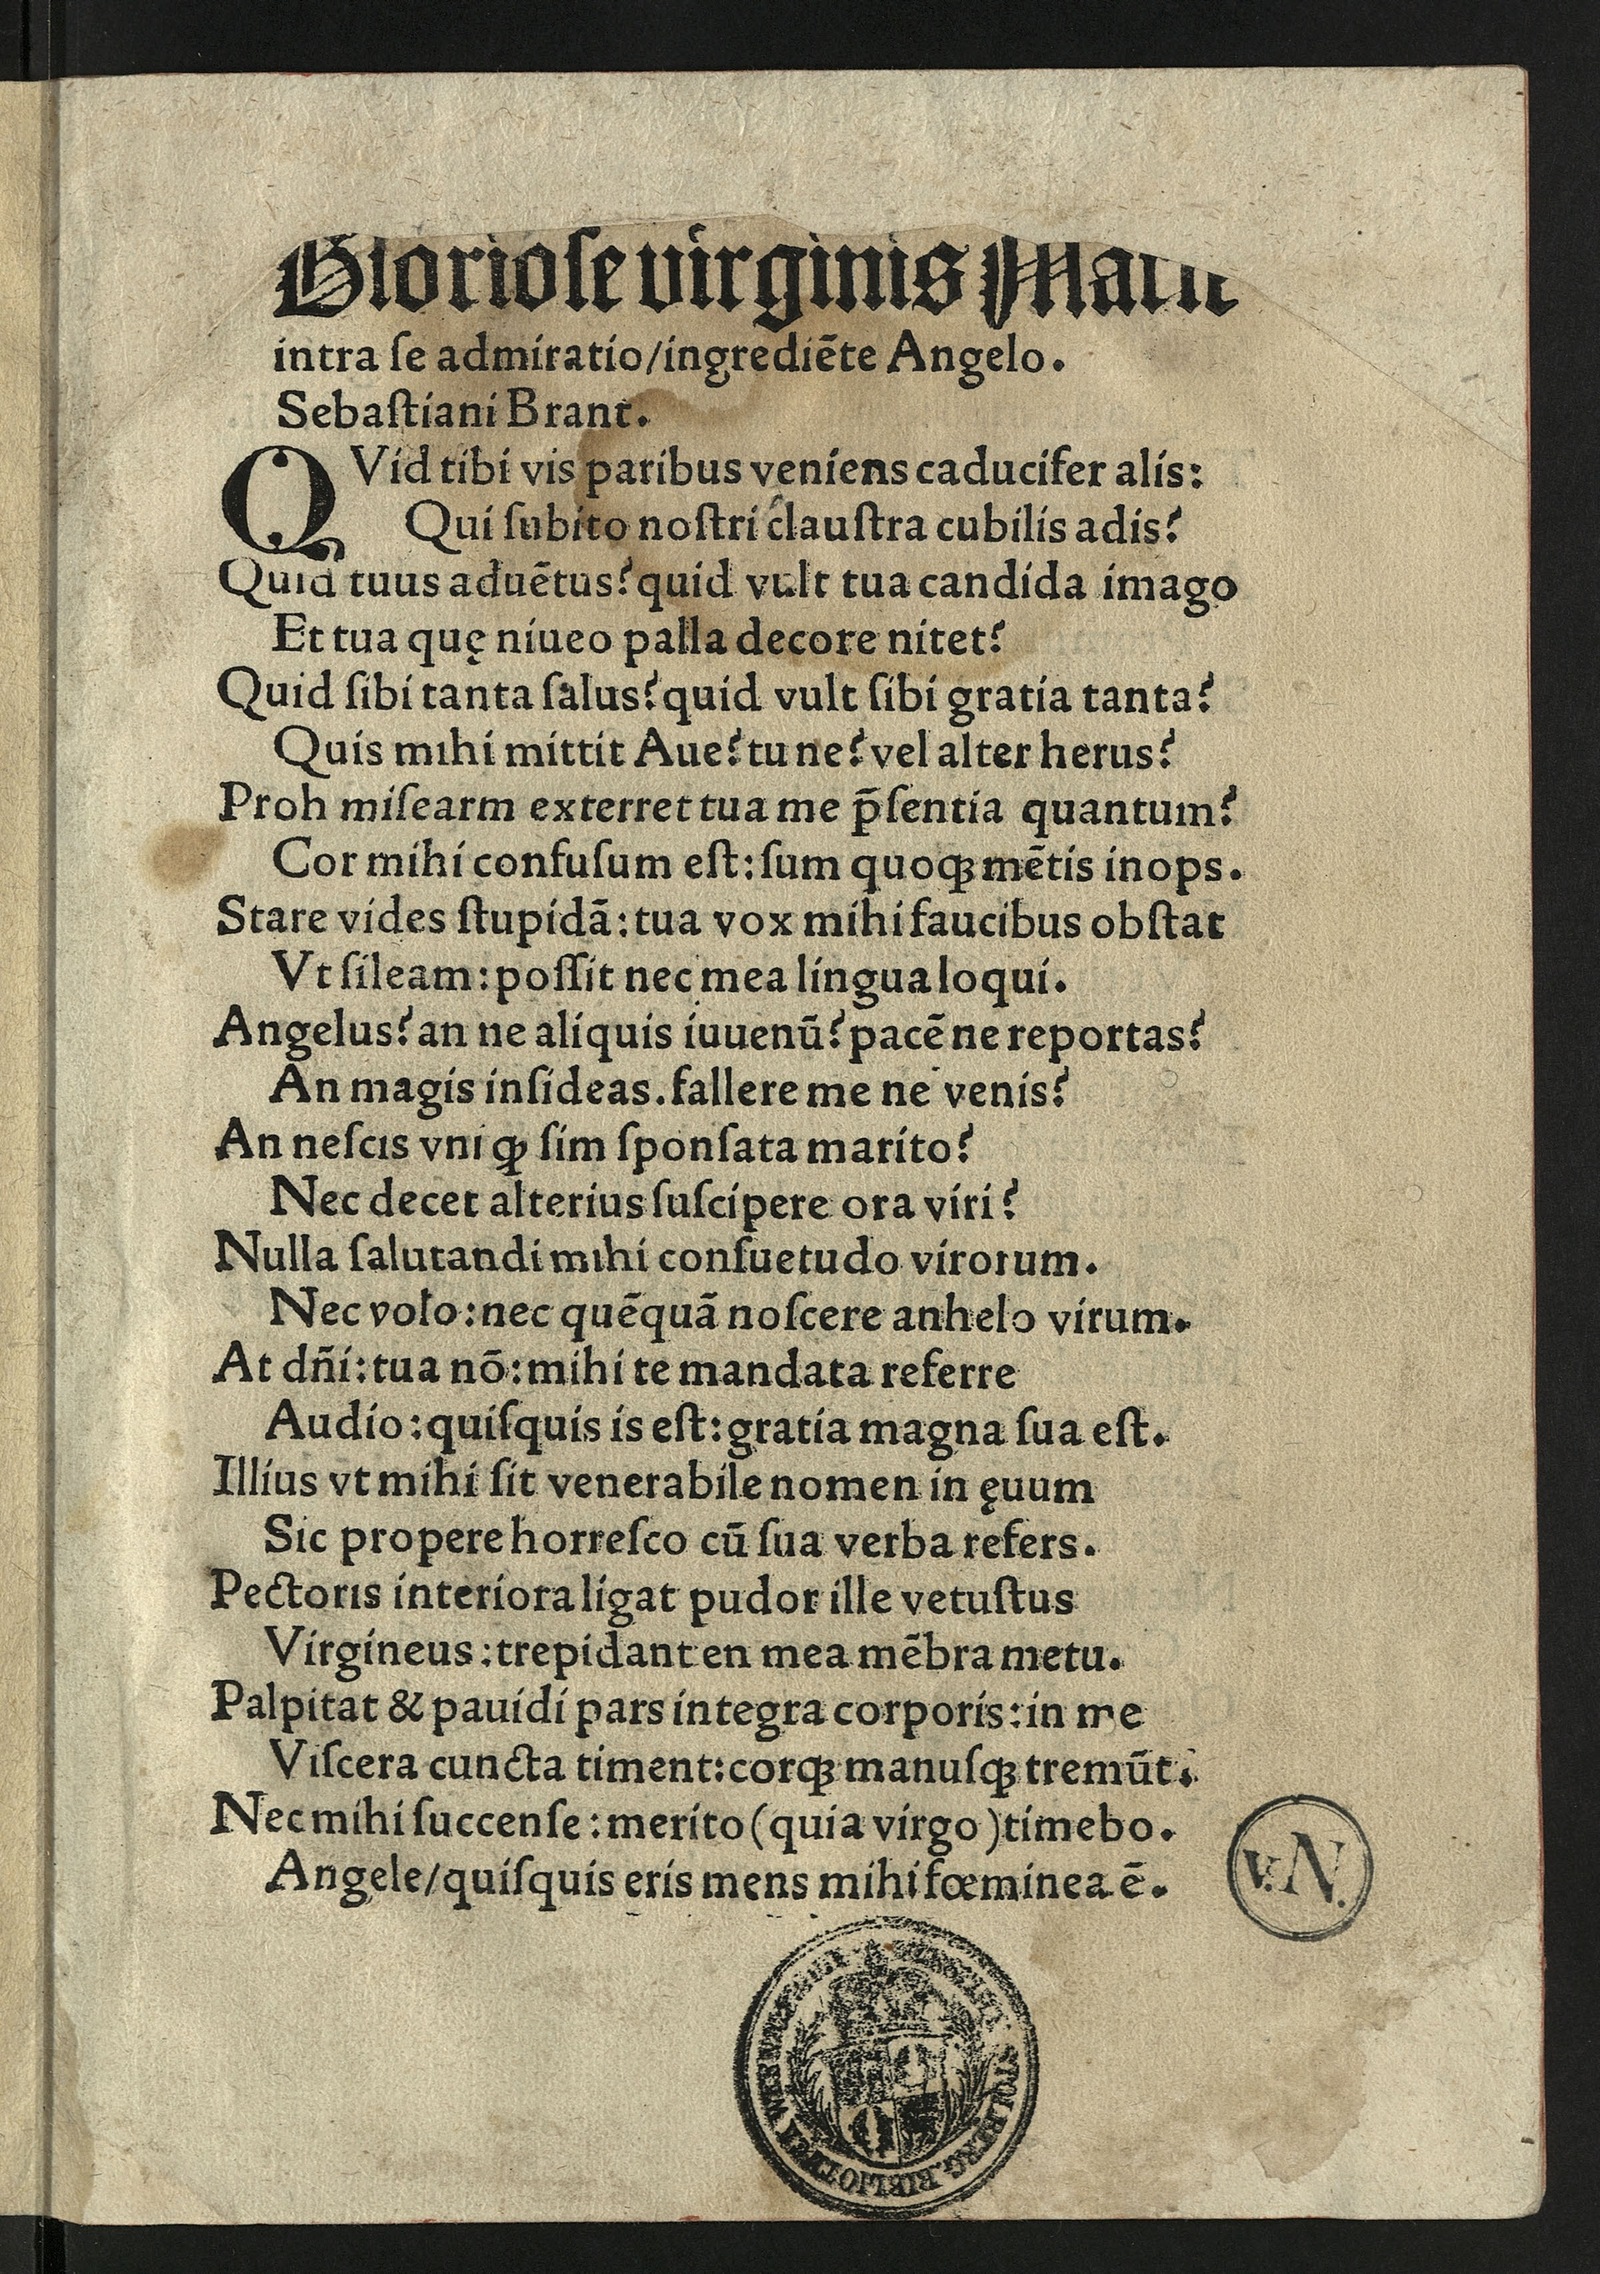 Glorioſe virginis Marie
intra ſe admiratio/ingrediēte Angelo.
Sebaſtiani Brant.
QVid tibi vis paribus veniens caducifer alis:
Qui ſubito noſtri clauſtra cubilis adis?
Quid tuus aduētus? quid vult tua candida imago
Et tua quę niueo palla decore nitet?
Quid ſibi tanta ſalus? quid vult ſibi gratia tanta?
Quis mihi mittit Aue? tu ne? vel alter herus?
Proh miſearm exterret tua me p̄ſentia quantum?
Cor mihi confuſum eſt: ſum quoqꝫ mētis inops.
Stare vides ſtupidā: tua vox mihi faucibus obſtat
Vt ſileam: poſſit nec mea lingua loqui.
Angelus? an ne aliquis iuuenū? pacē ne reportas?
An magis inſideas. fallere me ne venis?
An neſcis vni ꝙ ſim ſponſata marito?
Nec decet alterius ſuſcipere ora viri?
Nulla ſalutandi mihi conſuetudo virorum.
Nec volo: nec quēquā noſcere anhelo virum.
At dn̄i: tua nō: mihi te mandata referre
Audio: quiſquis is eſt: gratia magna ſua eſt.
Illius vt mihi ſit venerabile nomen in ęuum
Sic propere horreſco cū ſua verba refers.
Pectoris interiora ligat pudor ille vetuſtus
Virgineus: trepidant en mea mēbra metu.
Palpitat & pauidi pars integra corporis: in me
Viſcera cuncta timent: corqꝫ manuſqꝫ tremūt.
Nec mihi ſuccenſe: merito (quia virgo) timebo.
Angele/quiſquis eris mens mihi fœminea ē.
v. N.
STOLBERG. BIBLIOTHEK